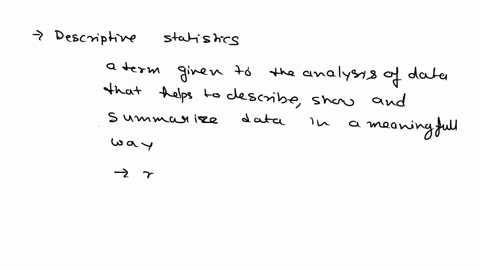 → Descriptive statistics
a term given to the analysis of data
that helps to describe, show and
summarize data in a meaningfull
way
→ r